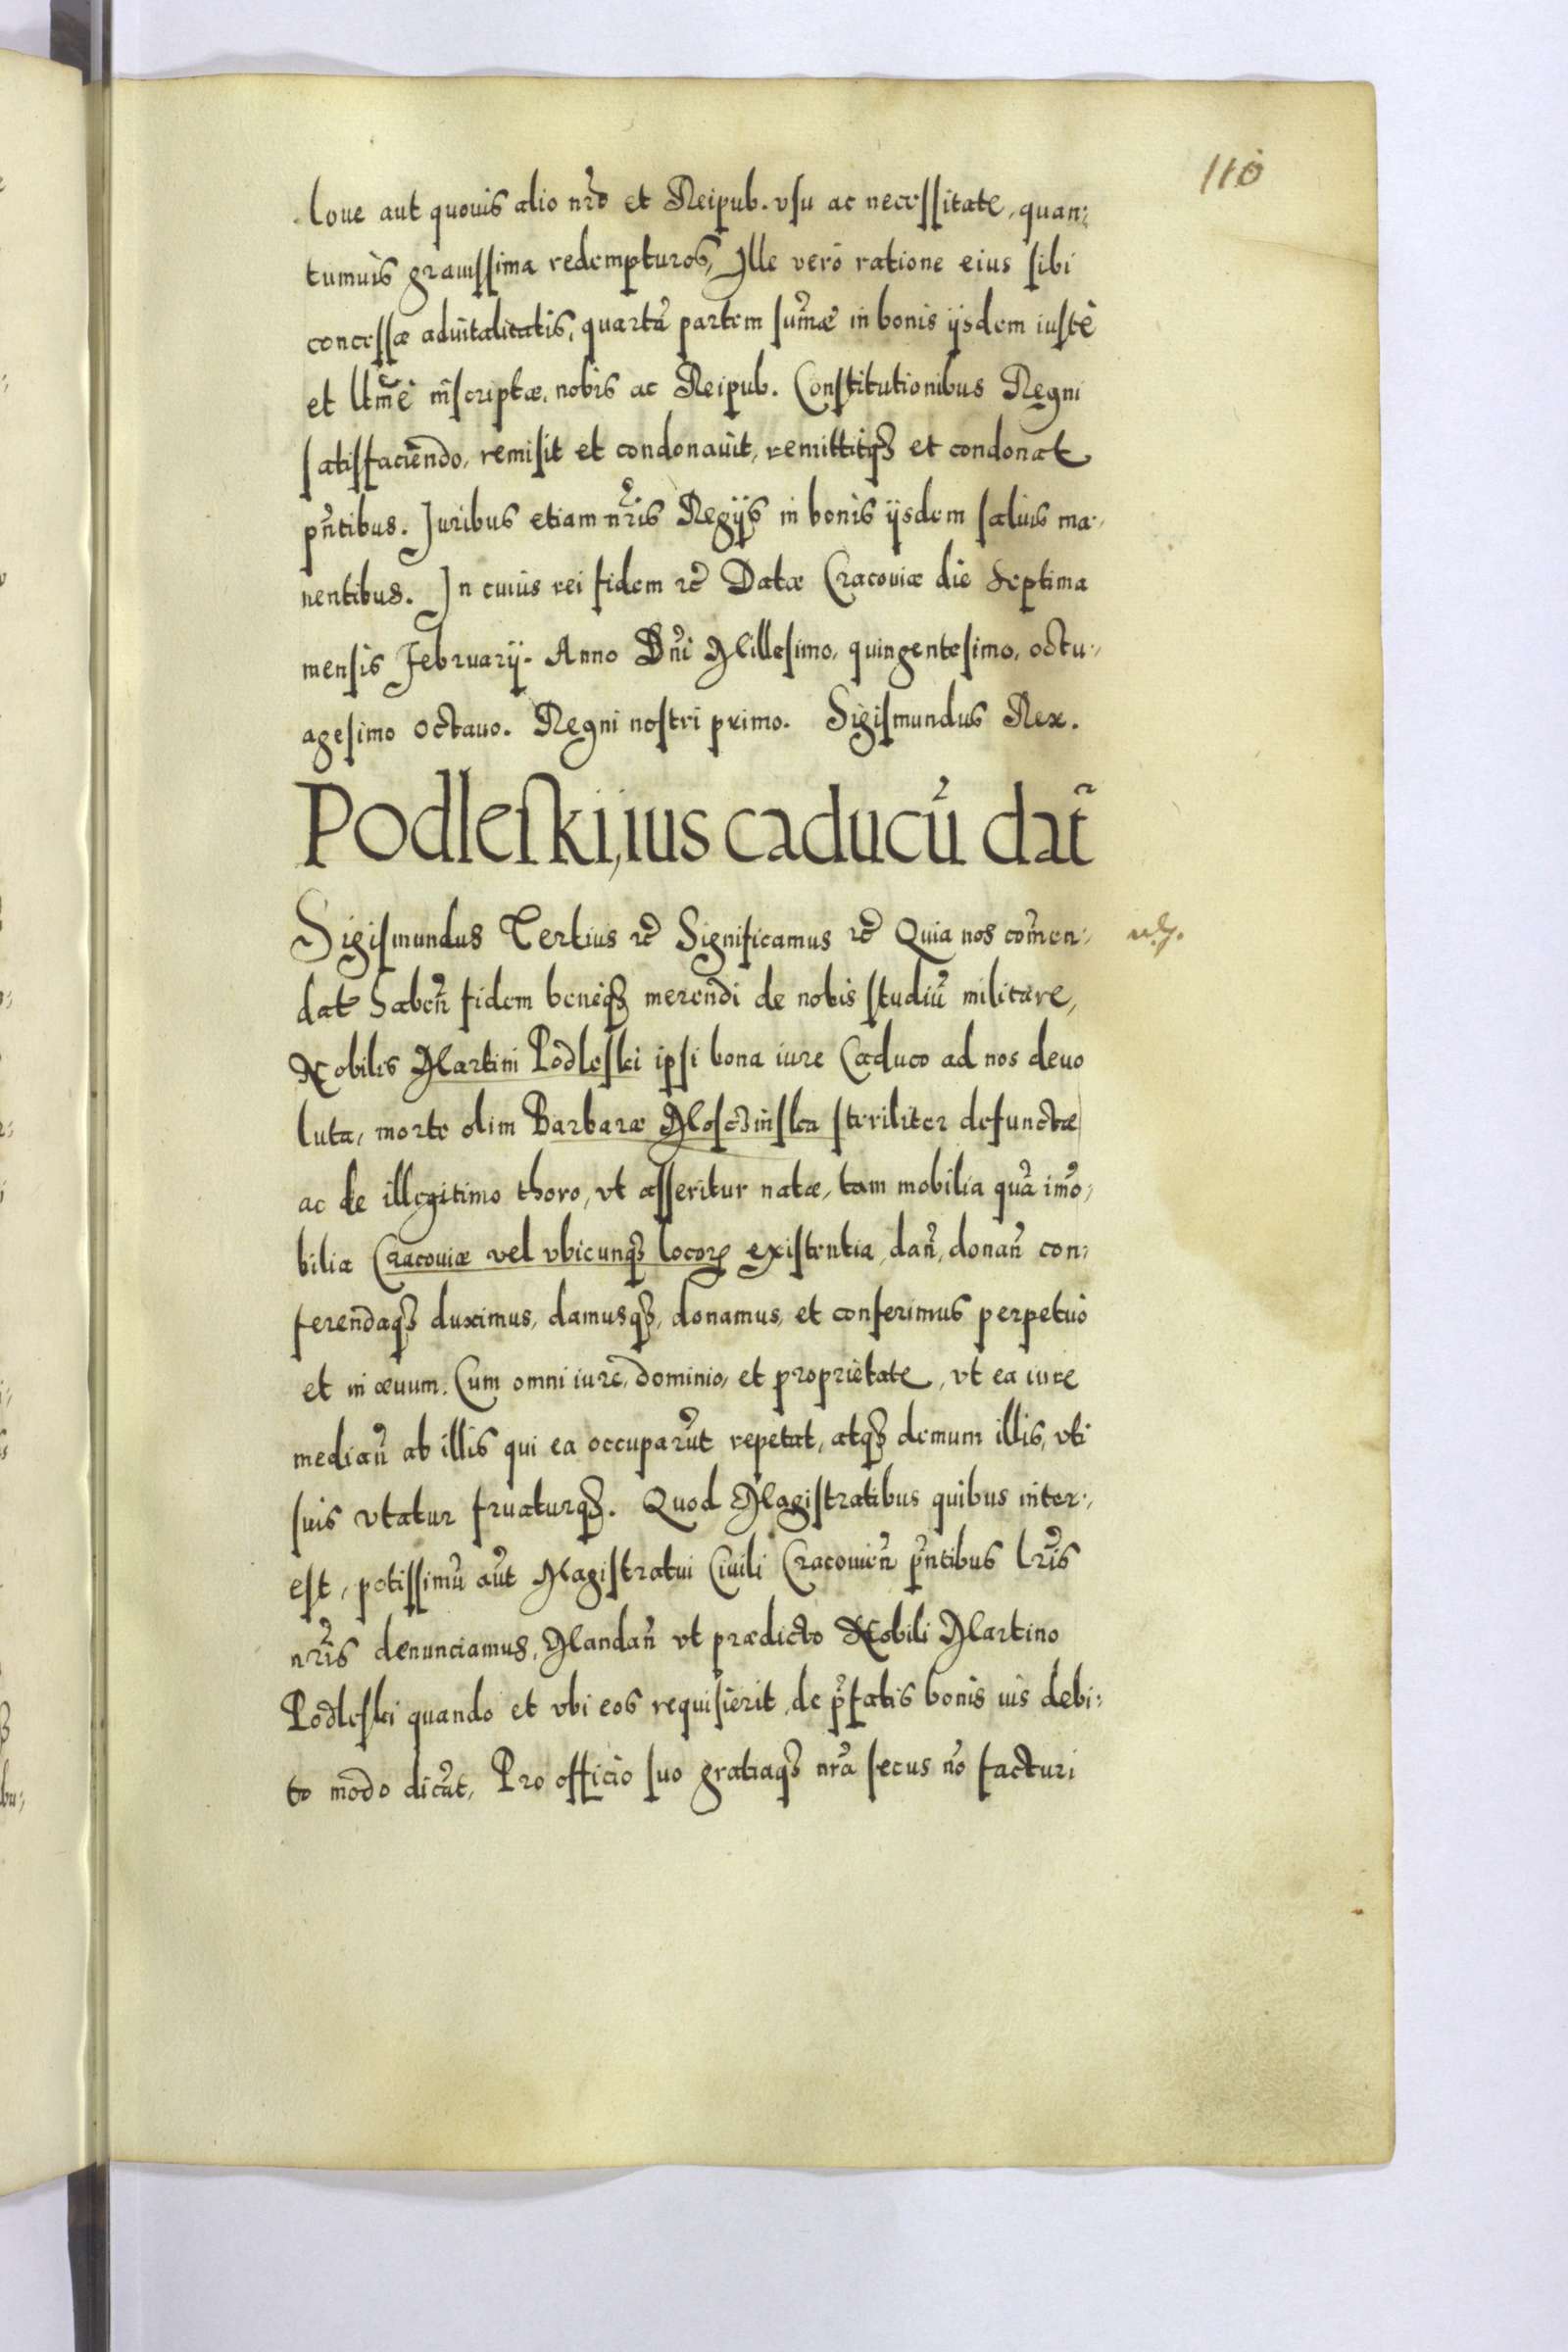 110
loue aut quouis alio nr̃o et Reipub. vsu ac necessitate, quan:
tumuis grauissima redempturos, Ille verò ratione eius sibi
concessæ aduitalitatis, quartã partem sum̃æ in bonis ijsdem iustè
et ltm̃e inscriptæ, nobis ac Reipub. Constitutionibus Regni
satisfaciendo, remisit et condonauit, remittitq3 et condonat
pñtibus. Juribus etiam nr̃is Regijs in bonis ijsdem saluis ma:
nentibus. In cuius rei fidem &c Datæ Cracouiæ die Septima
mensis February. Anno Dñi Millesimo, quingentesimo, octu:
agesimo octauo. Regni nostri primo. Sigismundus Rex.
Podleski, ius caducũ dat̃
Sigismundus Tertius &c Significamus &c Quia nos com̃en:
dat habeñ fidem beneq3 merendi de nobis studiũ militare,
Nobilis Martini Podleski ipsi bona iure Caduco ad nos deuo
luta, morte olim Barbaræ Moschinska steriliter defunctæ
ac de illegitimo thoro, vt asseritur natæ, tam mobilia quã im̃o:
bilia Cracouiæ vel vbicunq3 locorꝝ existentia, dañ, donañ con:
ferendaq3 duximus, damusq3, donamus, et conferimus perpetuò
et in æuum. Cum omni iure, dominio, et proprietate, vt ea iure
mediañ ab illis qui ea occuparũt repetat, atq3 demum illis, vti
suis vtatur fruaturq3. Quod Magistratibus quibus inter:
est, potissimũ aũt Magistratui Ciuili Cracouieñ pñtibus lr̃is
nr̃is denunciamus, Mandañ vt prædicto Nobili Martino
Podleski quando et vbi eos requisierit, de p̃fatis bonis ius debi:
to modo dicãt, Pro officio suo gratiaq3 nr̃a secus nõ facturi